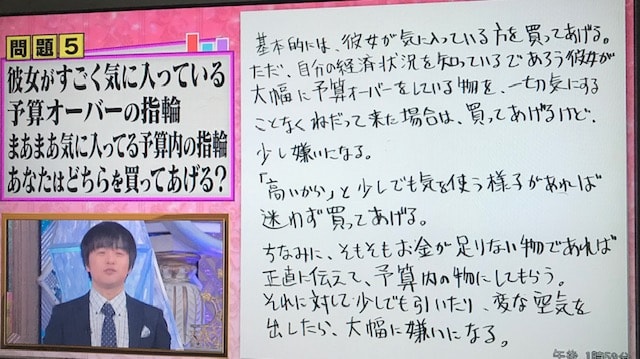 問題5
彼女がすごく気に入っている
予算オーバーの指輪
まあまあ気に入ってる予算内の指輪
あなたはどちらを買ってあげる?
基本的には、彼女が気に入っている方を買ってあげる。
ただ、自分の経済状況を知っているであろう彼女が
大幅に予算オーバーをしている物を、一切気にする
ことなくねだって来た場合は、買ってあげるけど、
少し嫌いになる。
「高いから」と少しでも気を使う様子があれば
迷わず買ってあげる。
ちなみに、そもそもお金が足りない物であれば
正直に伝えて、予算内の物にしてもらう。
それに対して少しでも引いたり、変な空気を
出したら、大幅に嫌いになる。